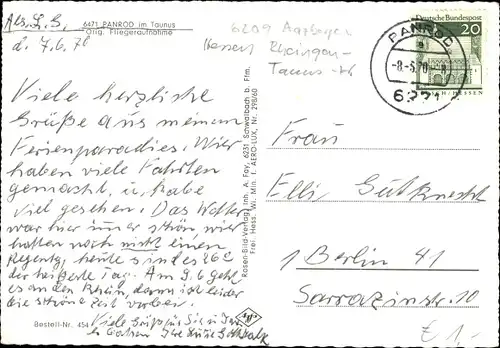 6471 PANROD im Taunus
Orig. Fliegeraufnahme
d. 7.6.70
6209 Aarbergen
Hessen Rheingau-
Taunus-
Deutsche Bundespost
20
PANROD
Viele herzliche
Grüße aus meinem
Ferienparadies. Wir
haben viele Fahrten
gemacht, u. habe
viel gesehen. Das Wetter
war hier immer schön, wir
hatten noch nicht einen
Regentg. heute sind es 26°
der heißeste Tag. Am 9.6 geht
es an den Rhein, dann ist leider
die schöne Zeit vorbei.
Viele Grüße für Sie u. Ihren
Bestell-Nr. 454
Rosen-Bild-Verlag, Inh. A. Fay, 6231 Schwalbach b. Ffm.
Frei. Hess. W. Min f. AERO-LUX, Nr. 298/60
Agfa
Frau
Elli Gutknecht
1 Berlin 41
Sarrazinstr. 10
€ 1,-